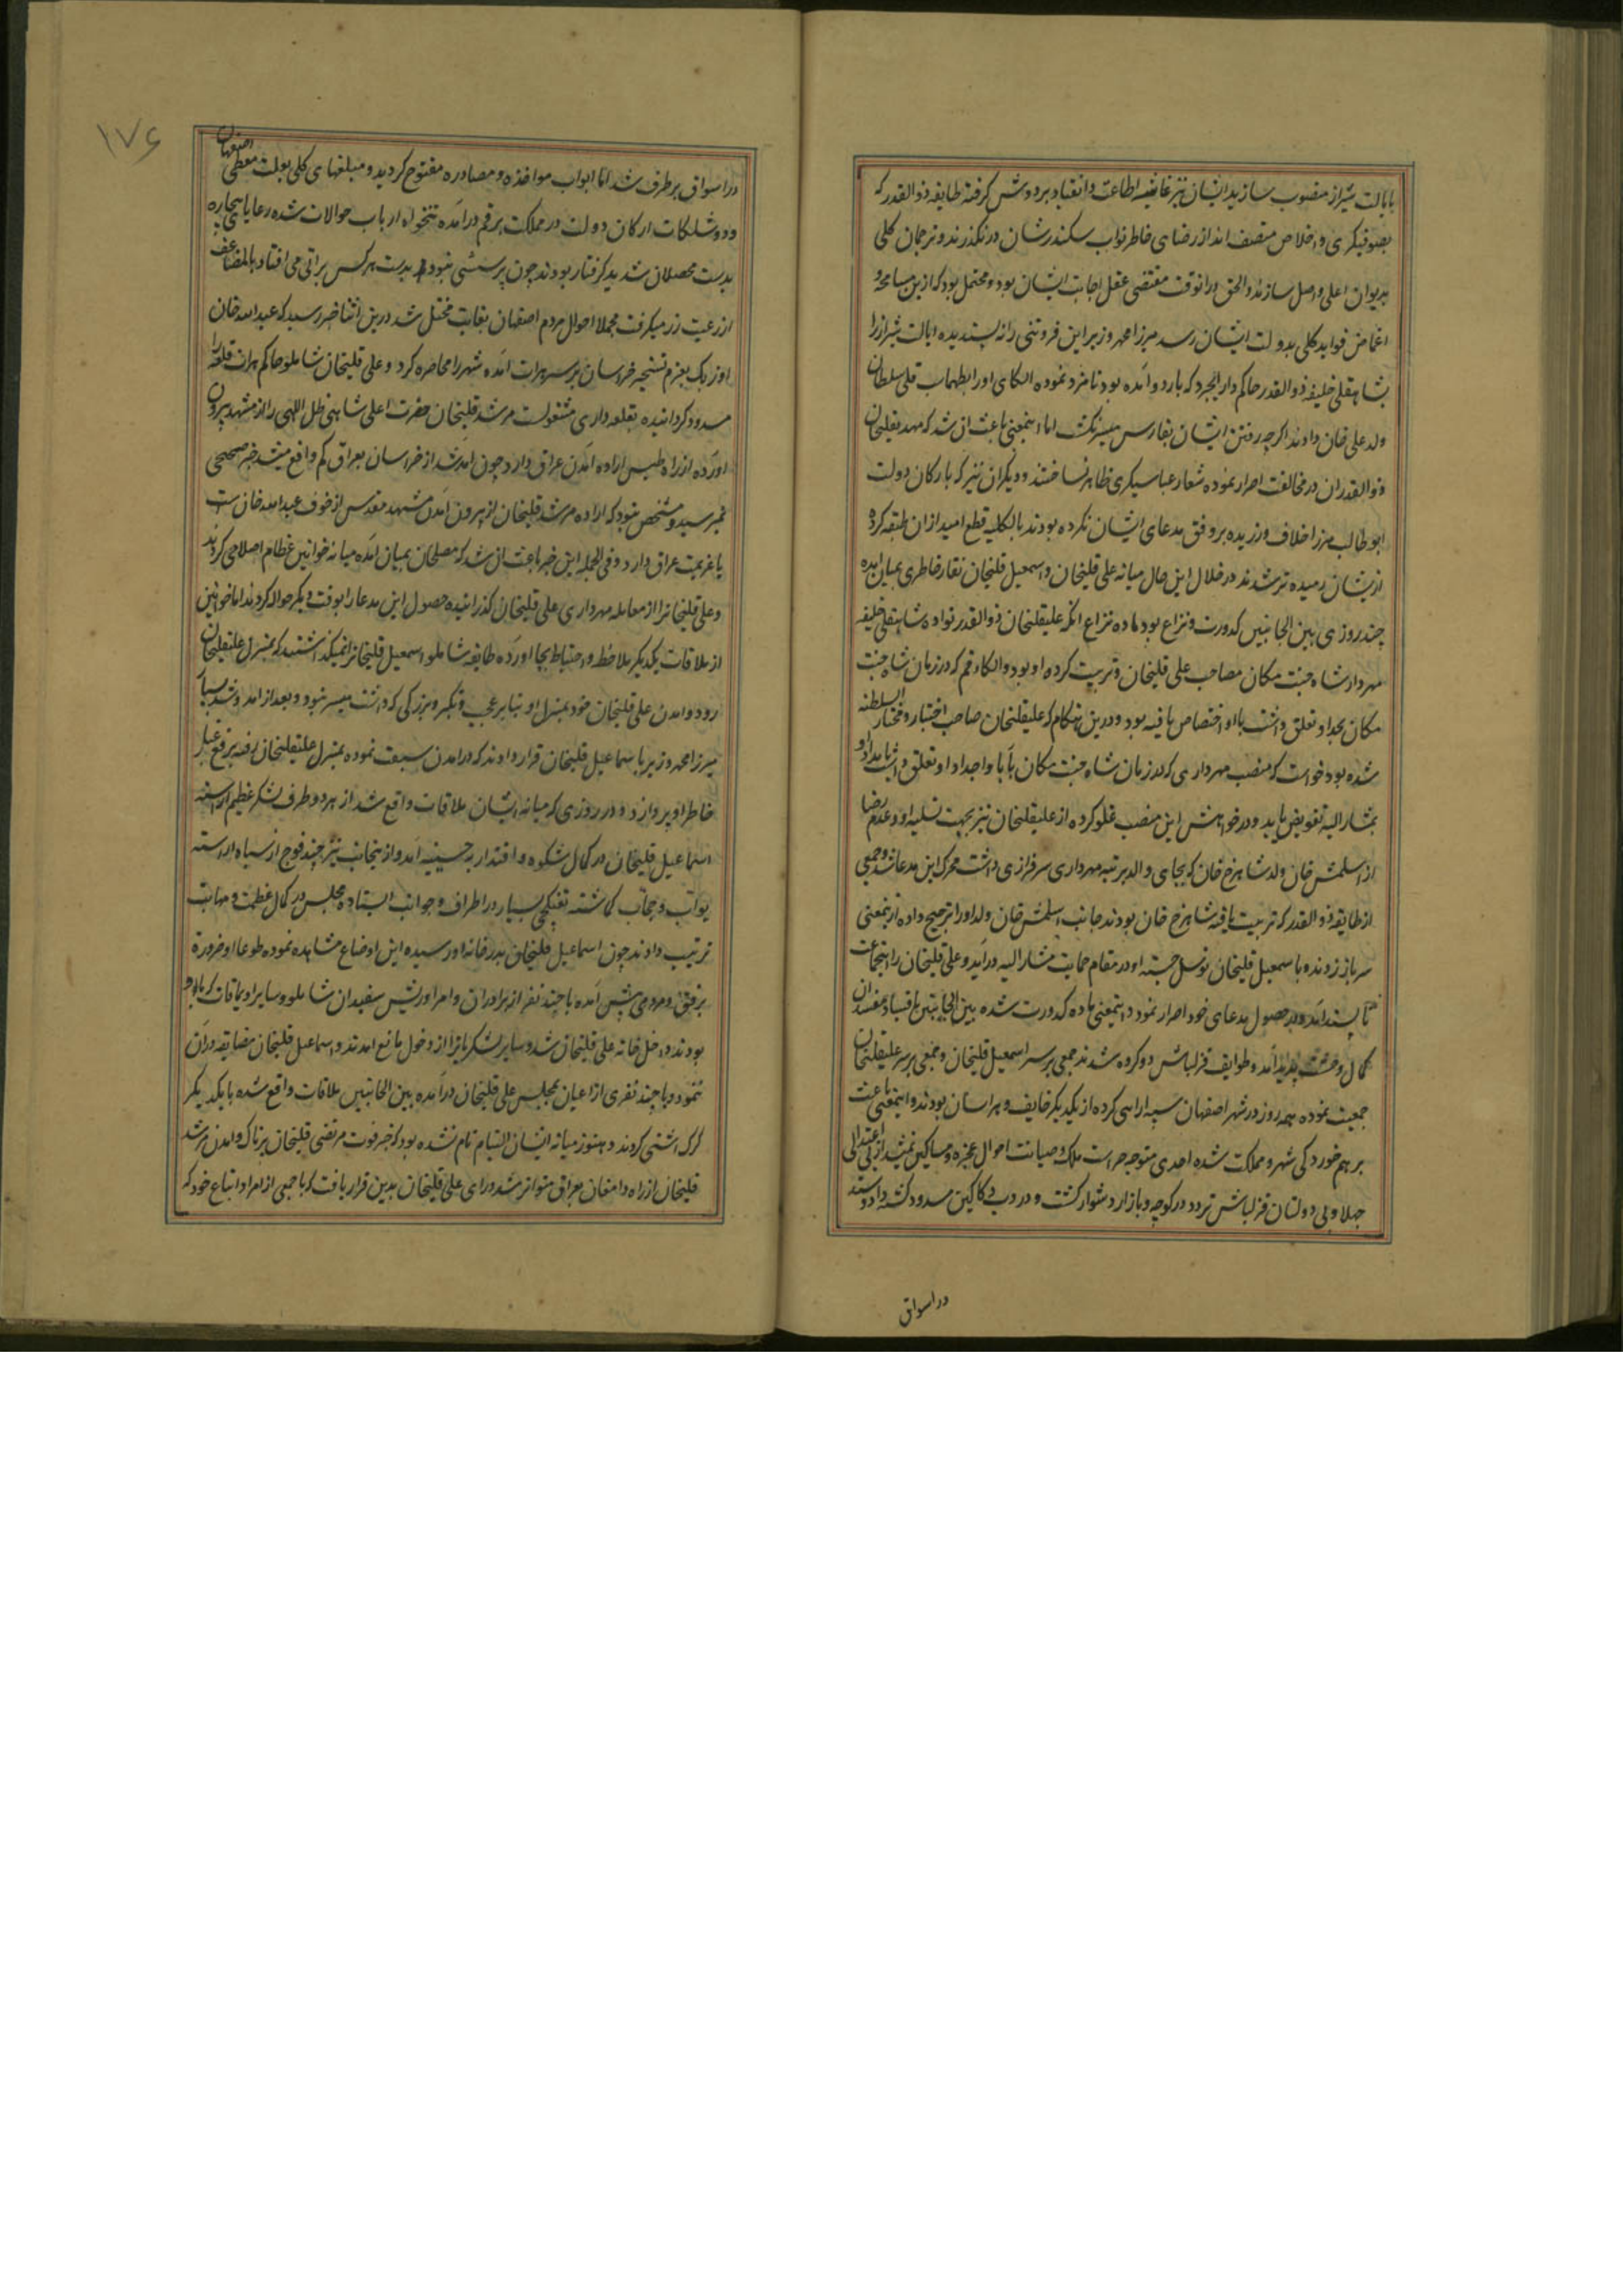 بایالت شیراز منصوب سازید ایشان نیز غاشیه اطاعت و انقیاد بر دوش گرفته طایفه ذوالقدر که
بصوفیگری و اخلاص متصف‌اند از رضای خاطر نواب سکندرشان درنگذرند و ترجمان کلی
بدیوان اعلی واصل سازند والحق در انوقت مقتضی عقل اجابت ایشان بود و محتمل بود که ازین مسامحه و
اغماض فواید کلی بدولت ایشان رسد میرزا محمد وزیر این فروتنی را نه پسندیده ایالت شیراز را
بشاهقلی خلیفه ذوالقدر حاکم دارابجرد که باردو آمده بود نامزد نموده الکای او را بطهماسب قلی سلطان
ولد علی خان دادند اگرچه رفتن ایشان بفارس میسر نگشت اما اینمعنی باعث ان شد که مهدیقلیخان
و ذوالقدران در مخالفت اصرار نموده شعار عباسیگری ظاهر ساختند و دیگران نیز که بارکان دولت
ابوطالب میرزا خلاف ورزیده بر وفق مدعای ایشان نکرده بودند بالکلیه قطع امید ازان طبقه کرده
ازیشان رمیده‌تر شدند در خلال این حال میانه علی قلیخان و اسمعیل قلیخان نقار خاطری بمیان آمده
چند روزی بین الجانبین کدورت و نزاع بود ماده نزاع انکه علیقلیخان ذوالقدر نواده شاهقلی خلیفه
مهردار شاه جنت مکان مصاحب علی قلیخان و تربیت کرده او بود و الکاء قم که در زمان شاه جنت
مکان بجد او تعلق داشت باو اختصاص یافته بود و درین هنگام که علیقلیخان صاحب اختیار و مختار السلطنه
شده بود خواست که منصب مهرداری که در زمان شاه جنت مکان بآبا و اجداد او تعلق داشت
بمشار الیه تفویض یابد و در خواهش این منصب غلو کرده از علیقلیخان نیز بجهت تسلیه او و عدم رضا
از اسلمش خان ولد شاهرخ خان که بجای والد برتبه مهرداری سرفرازی داشت محرک این مدعا شد و جمعی
از طایفه ذوالقدر که تربیت یافته شاهرخ خان بودند جانب اسلمش خان ولد او را ترجیح داده ازینمعنی
سر باز زدند و باسمعیل قلیخان توسل جسته او در مقام حمایت مشار الیه درآمد و علی قلیخان را اینحمایت
ناپسند آمده در حصول مدعای خود اصرار نمود و اینمعنی ماده کدورت شده بین الجانبین بافساد مفسدان
کمال وحشت پدید آمد و طوایف قزلباش دو گروه شدند جمعی بر سر اسمعیل قلیخان و جمعی بر سر علیقلیخان
جمعیت نموده همه روز در شهر اصفهان سپه ارایی کرده از یکدیگر خایف و هراسان بودند و اینمعنی باعث
برهم خوردگی شهر و مملکت شده احدی متوجه حراست ملک و صیانت احوال عجزه و مساکین نمیشد از بی اعتدالی
جهلا و بی دولتان قزلباش تردد در کوچه و بازار دشوار گشت و در دب دکاکین مسدود گشته داد و ستد
در اسواق
۱۷۶
در اسواق برطرف شد اما ابواب مواخذه و مصادره مفتوح گردید و مبلغهای کلی بعلت معطی اصفهان
و دوشلکات ارکان دولت در مملکت برقم درآمده تنخواه ارباب حوالات شده رعایای بیچاره
بدست محصلان شدید گرفتار بودند چون پرسشی نبود بدست هر کس براتی می‌افتاد بالمضاعف
از رعیت زر میگرفت مجملا احوال مردم اصفهان بغایت مختل شد درین اثنا خبر رسید که عبدالله خان
اوزبک بعزم تسخیر خراسان بر سر هرات آمده شهر را محاصره کرد و علی قلیخان شاملو حاکم هرات قلعه را
مسدود گردانیده بقلعه‌داری مشغولست مرشد قلیخان حضرت اعلی شاهی ظل اللهی را از مشهد بیرون
آورده از راه طبس اراده آمدن عراق دارد چون آمد شد از خراسان بعراق کم واقع میشد خبر صحیحی
نمیرسید و مشخص نبود که اراده مرشد قلیخان از بیرون آمدن مشهد مقدس از خوف عبدالله خان است
یا عزیمت عراق دارد و فی الجمله این خبر باعث ان شد که مصلحان بمیان آمده میانه خوانین عظام اصلاحی کردند
و علی قلیخان را از معامله مهرداری علی قلیخان گذرانیده حصول این مدعا را بوقت دیگر حواله کردند اما خوانین
از ملاقات یکدیگر ملاحظه و احتیاط بجا آورده طایفه شاملو اسمعیل قلیخان را نمیگذاشتند که بمنزل علیقلیخان
رود و آمدن علی قلیخان خود بمنزل او بنابر عجب و تکبر و بزرگی که داشت میسر نبود و بعد از آمد و شد بسیار
میرزا محمد وزیر با اسماعیل قلیخان قرار دادند که در آمدن سبقت نموده بمنزل علیقلیخان رفته برفع غبار
خاطر او پردازد و در روزی که میانه ایشان ملاقات واقع شد از هر دو طرف لشکر عظیم آراسته
اسماعیل قلیخان در کمال شکوه و اقتدار آمد و از ینجانب نیز چند فوج از سپاه آراسته
بواب و حجاب گماشته تفنکچی بسیار در اطراف و جوانب ایستاده مجلس در کمال عظمت و مهابت
ترتیب دادند چون اسماعیل قلیخان بدرخانه او رسیده این اوضاع مشاهده نموده طوعا او ضرورة
برفق و مردمی پیش آمده با چند نفر از برادران و امرا و ریش سفیدان شاملو و سایر اویماقات که با او
بودند داخل خانه علی قلیخان شد و سایر لشکریانرا از دخول مانع آمدند و اسماعیل قلیخان مضایقه دران
ننمود و با چند نفری از اعیان بمجلس علی قلیخان درآمده بین الجانبین ملاقات واقع شده با یکدیگر
گرگ اشتی کردند و هنوز میانه ایشان التیام تام نشده بود که خبر فوت مرتضی قلیخان پرناک و آمدن مرشد
قلیخان از راه دامغان بعراق متواتر شد و رای علی قلیخان بدین قرار یافت که با جمعی از امرا و اتباع خود که